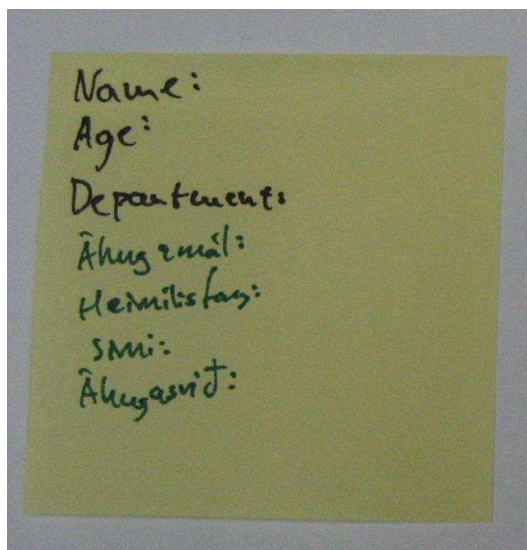 Name:
Age:
Department:
Áhugamál:
Heimilisfang:
Sími:
Áhugasvið: